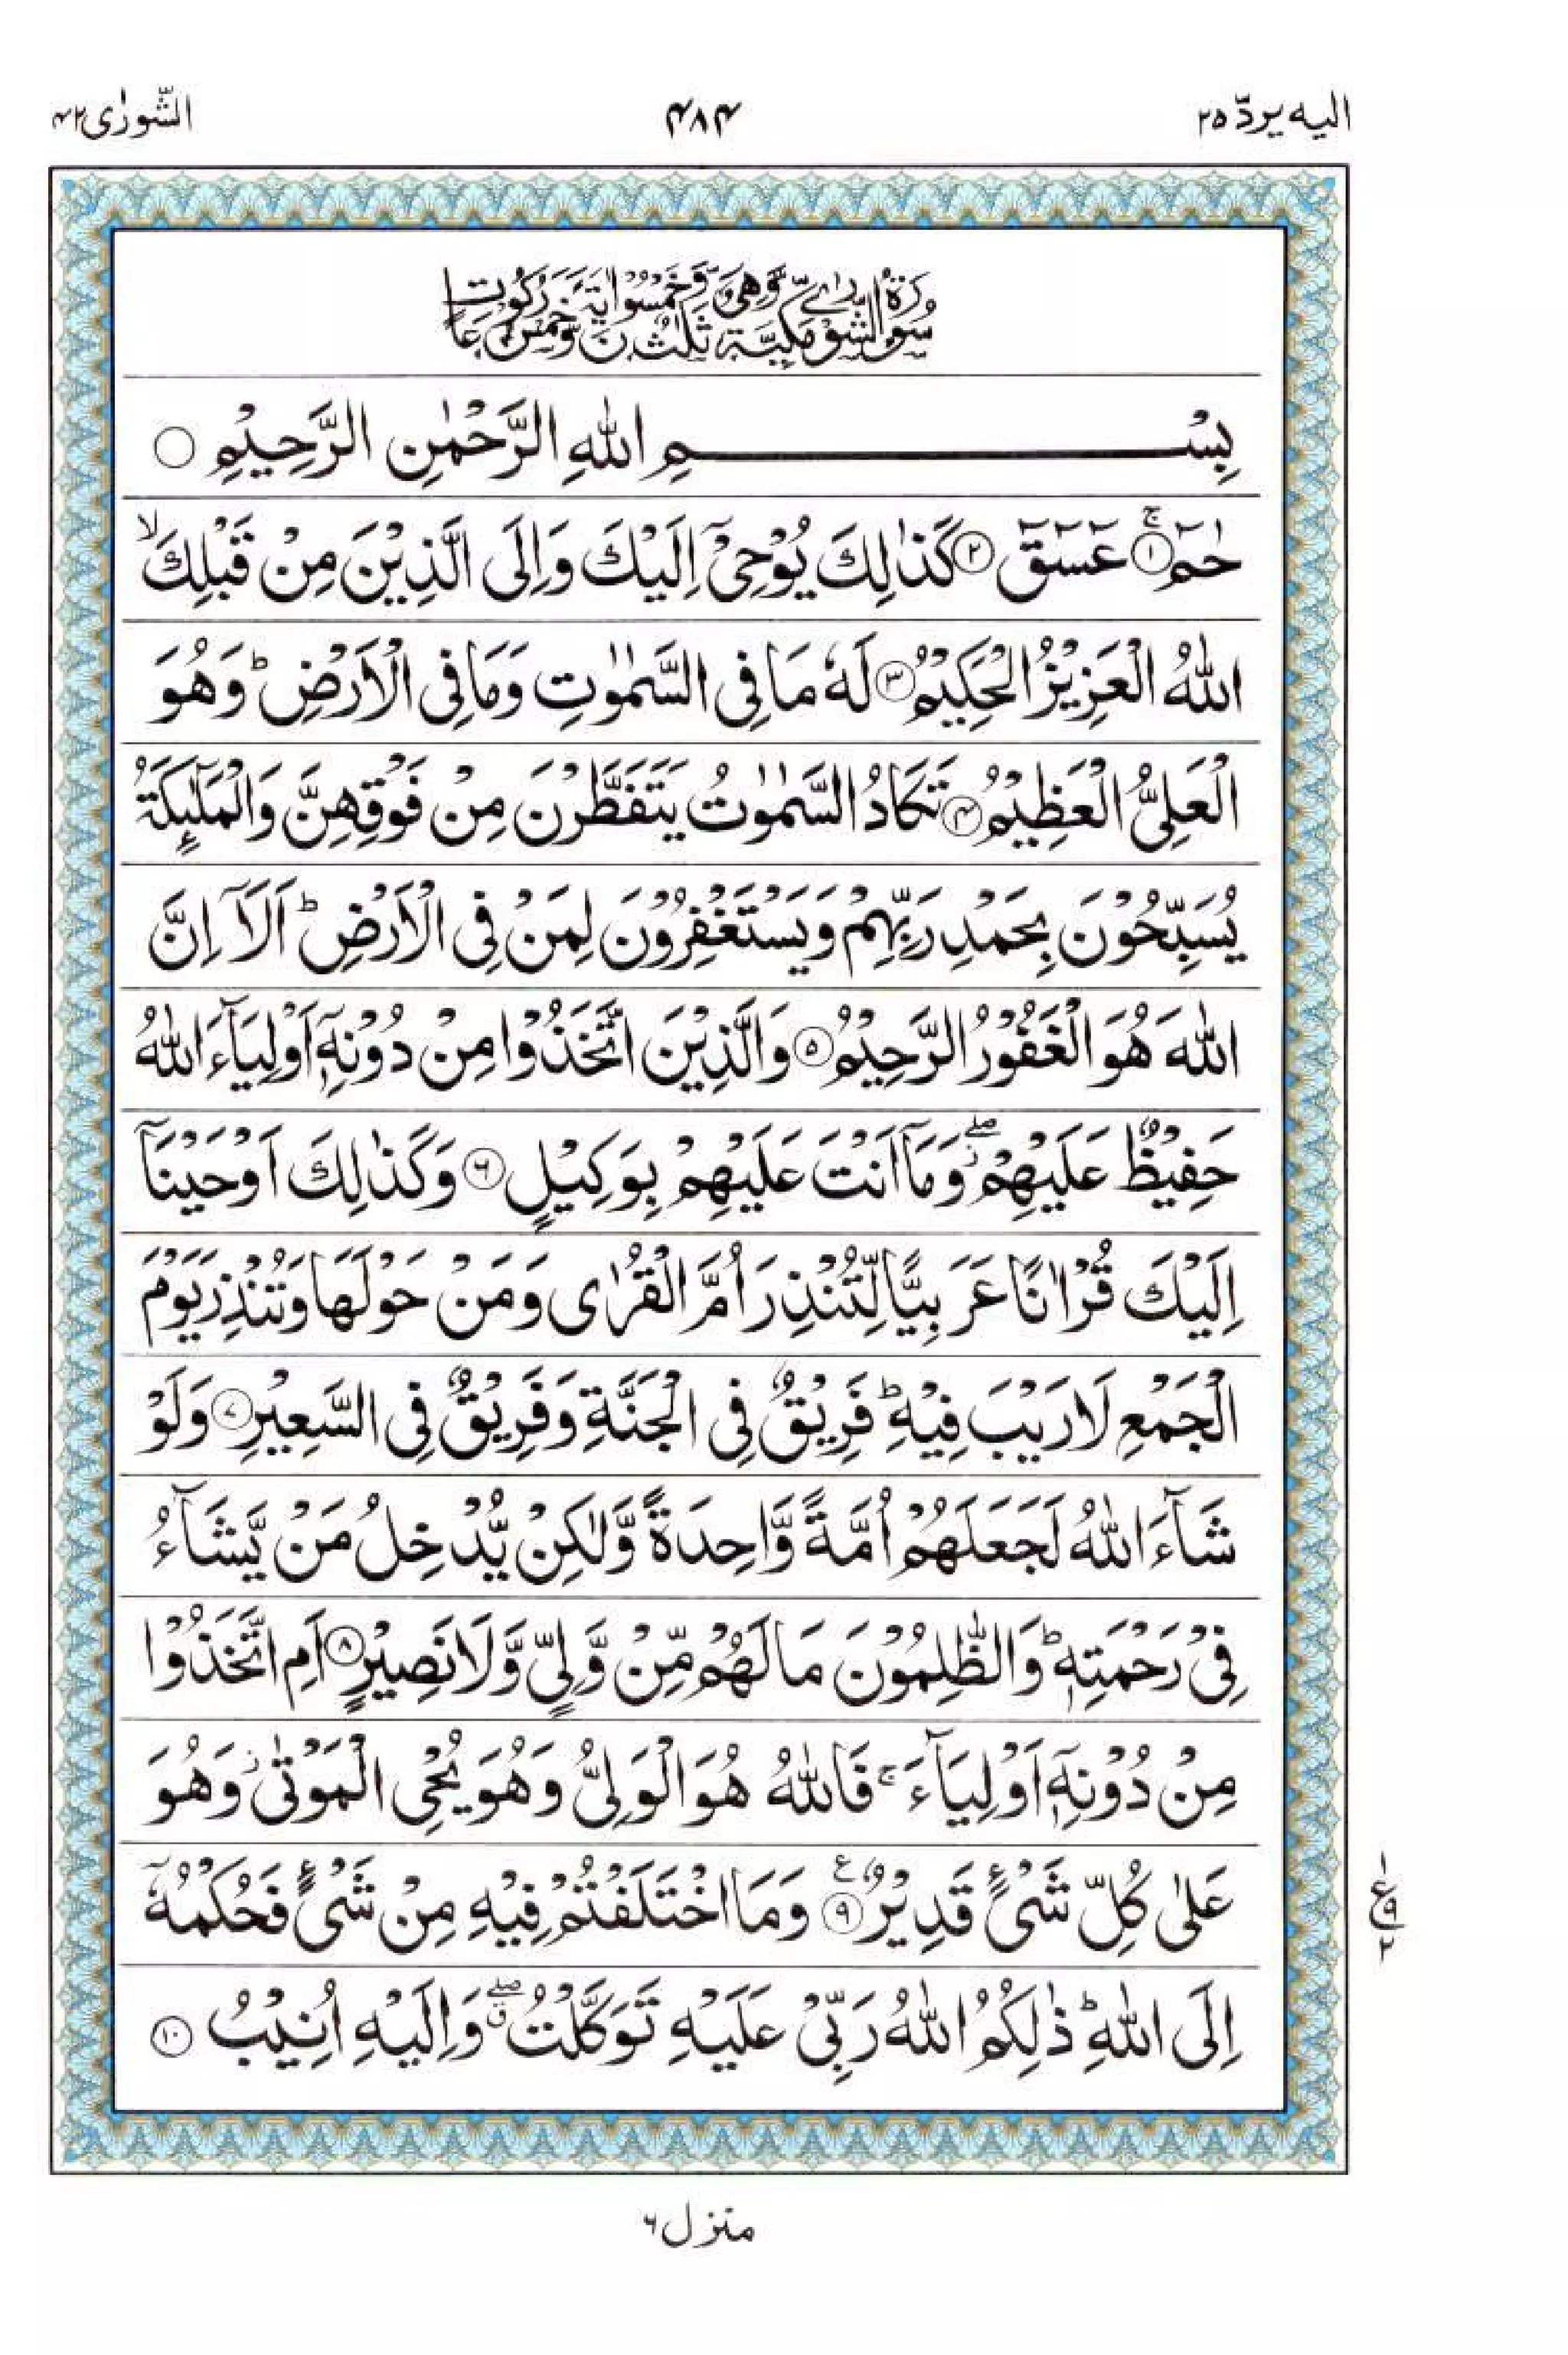 الیہ یردّ ۲۵ ۴۸۴ الشّورٰی ۴۲
سُوْرَةُ الشُّوْرٰى مَكِّيَّةٌ وَّهِيَ ثَلٰثٌ وَّخَمْسُوْنَ اٰيَةً وَّخَمْسُ رُكُوْعَاتٍ
بِسْمِ اللّٰهِ الرَّحْمٰنِ الرَّحِيْمِ ○
حٰمٓ ۚ﴿۱﴾ عٓسٓقٓ ﴿۲﴾ كَذٰلِكَ يُوْحِيْۤ اِلَيْكَ وَاِلَى الَّذِيْنَ مِنْ قَبْلِكَ ۙ
اللّٰهُ الْعَزِيْزُ الْحَكِيْمُ ﴿۳﴾ لَهٗ مَا فِي السَّمٰوٰتِ وَمَا فِي الْاَرْضِ ؕ وَهُوَ
الْعَلِيُّ الْعَظِيْمُ ﴿۴﴾ تَكَادُ السَّمٰوٰتُ يَتَفَطَّرْنَ مِنْ فَوْقِهِنَّ وَالْمَلٰٓئِكَةُ
يُسَبِّحُوْنَ بِحَمْدِ رَبِّهِمْ وَيَسْتَغْفِرُوْنَ لِمَنْ فِي الْاَرْضِ ؕ اَلَاۤ اِنَّ
اللّٰهَ هُوَ الْغَفُوْرُ الرَّحِيْمُ ﴿۵﴾ وَالَّذِيْنَ اتَّخَذُوْا مِنْ دُوْنِهٖۤ اَوْلِيَآءَ اللّٰهُ
حَفِيْظٌ عَلَيْهِمْ ۖؗ وَمَاۤ اَنْتَ عَلَيْهِمْ بِوَكِيْلٍ ﴿۶﴾ وَكَذٰلِكَ اَوْحَيْنَاۤ
اِلَيْكَ قُرْاٰنًا عَرَبِيًّا لِّتُنْذِرَ اُمَّ الْقُرٰى وَمَنْ حَوْلَهَا وَتُنْذِرَ يَوْمَ
الْجَمْعِ لَا رَيْبَ فِيْهِ ؕ فَرِيْقٌ فِي الْجَنَّةِ وَفَرِيْقٌ فِي السَّعِيْرِ ﴿۷﴾ وَلَوْ
شَآءَ اللّٰهُ لَجَعَلَهُمْ اُمَّةً وَّاحِدَةً وَّلٰكِنْ يُّدْخِلُ مَنْ يَّشَآءُ
فِيْ رَحْمَتِهٖ ؕ وَالظّٰلِمُوْنَ مَا لَهُمْ مِّنْ وَّلِيٍّ وَّلَا نَصِيْرٍ ﴿۸﴾ اَمِ اتَّخَذُوْا
مِنْ دُوْنِهٖۤ اَوْلِيَآءَ ۚ فَاللّٰهُ هُوَ الْوَلِيُّ وَهُوَ يُحْيِ الْمَوْتٰى ؗ وَهُوَ
عَلٰى كُلِّ شَيْءٍ قَدِيْرٌ ﴿۹﴾ ع وَمَا اخْتَلَفْتُمْ فِيْهِ مِنْ شَيْءٍ فَحُكْمُهٗۤ
اِلَى اللّٰهِ ؕ ذٰلِكُمُ اللّٰهُ رَبِّيْ عَلَيْهِ تَوَكَّلْتُ ۖۗ وَاِلَيْهِ اُنِيْبُ ﴿۱۰﴾
۱
ع ۹
۲
منزل ۶